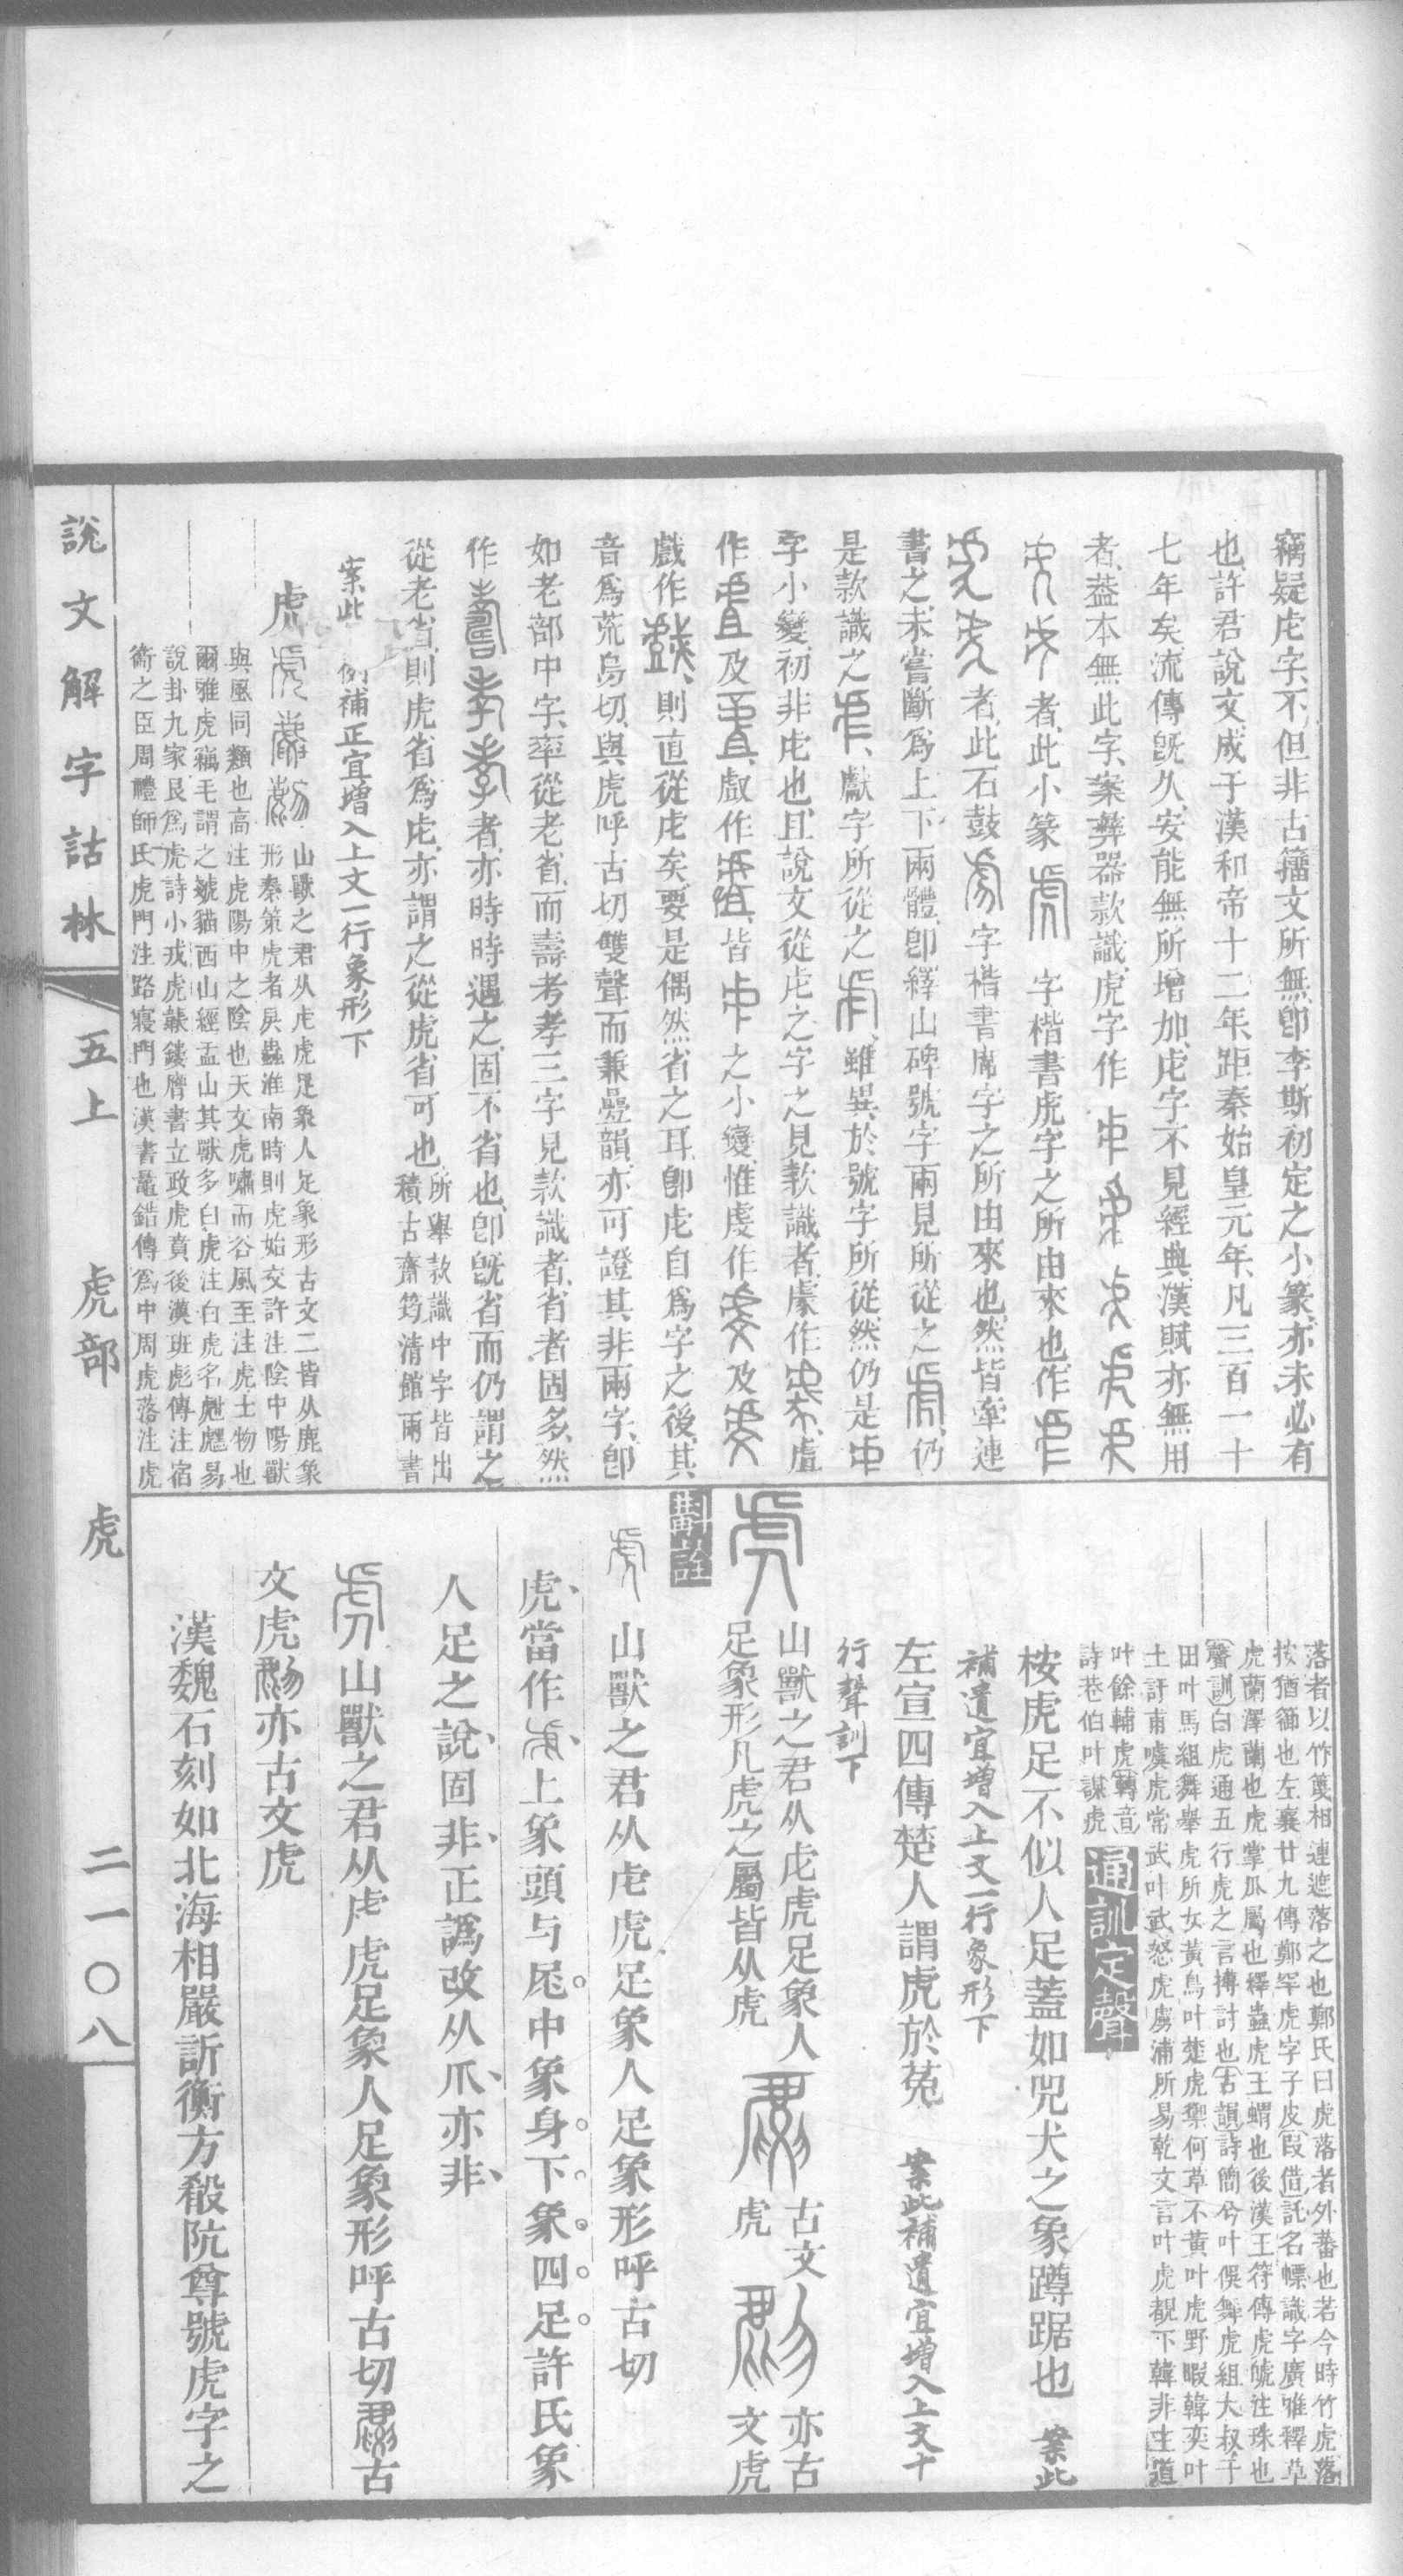 竊疑虍字、不但非古籒文所無、卽李斯初定之小篆、亦未必有
也、許君說文、成于漢和帝十二年、距秦始皇元年、凡三百一十
七年矣、流傳旣久、安能無所增加、虍字不見經典、漢賦亦無用
者、葢本無此字、案彝器款識、虎字作
者、此小篆 字楷書虎字之所由來也、作
者、此石鼓 字楷書虎字之所由來也、然皆牽連
書之、未嘗斷爲上下兩體、卽繹山碑號字兩見、所從之 仍
是款識之 、獻字所從之 、雖異於號字所從、然仍是
字小變、初非虍也、且說文從虍之字之見款識者、豦作 、盧
作 及 、戲作 、皆 之小變、惟虔作 及
戲作 、則直從虍矣、要是偶然省之耳、卽虍自爲字之後、其
音爲荒烏切、與虎呼古切雙聲而兼疊韻、亦可證其非兩字、卽
如老部中字、率從老省、而壽考孝三字見款識者、省者固多、然
作 者、亦時時遇之、固不省也、卽旣省而仍謂之
從老省、則虎省爲虍、亦謂之從虎省可也、所舉款識中字皆出
積古齋筠清館兩書
案此 例補正宜增入上文一行象形下
虎 山獸之君从虍虎足象人足象形古文二皆从鹿象
形秦策虎者戾蟲淮南時則虎始交許注陰中陽獸
與風同類也高注虎陽中之陰也天文虎嘯而谷風至注虎土物也
爾雅虎竊毛謂之虦貓西山經盂山其獸多白虎注白虎名甝易
說卦九家艮爲虎詩小戎虎韔鏤膺書立政虎賁後漢班彪傳注宿
衛之臣周禮師氏虎門注路寢門也漢書鼂錯傳爲中周虎落注虎
落者以竹篾相連遮落之也鄭氏曰虎落者外蕃也若今時竹虎落
按猶篽也左襄廿九傳鄭罕虎字子皮叚借託名幖識字廣雅釋草
虎蘭澤蘭也虎掌瓜屬也釋蟲虎王蝟也後漢王符傳虎魄注珠也
聲訓白虎通五行虎之言搏討也古韻詩簡兮叶俁舞虎組大叔于
田叶馬組舞舉虎所女黃鳥叶楚虎禦何草不黃叶虎野暇韓奕叶
土訏甫噳虎常武叶武怒虎虜浦所易乾文言叶虎覩下韓非主道
叶餘輔虎轉音
詩巷伯叶謀虎
通訓定聲
桉虎足不似人足蓋如兕犬之象蹲踞也 案此
補遺宜增入上文一行象形下
左宣四傳楚人謂虎於菟 案此補遺宜增入上文十
行聲訓下
山獸之君从虍虎足象人
足象形凡虎之屬皆从虎
古文
虎
亦古
文虎
斠詮
山獸之君从虍虎足象人足象形呼古切
虎當作 上象頭与𡱝中象身下象四足許氏象
人足之說固非正譌改从爪亦非
山獸之君从虍虎足象人足象形呼古切 古
文虎 亦古文虎
漢魏石刻如北海相嚴訢衡方殽阬尊號虎字之
說文解字詁林
五上
虎部
虎
二一〇八